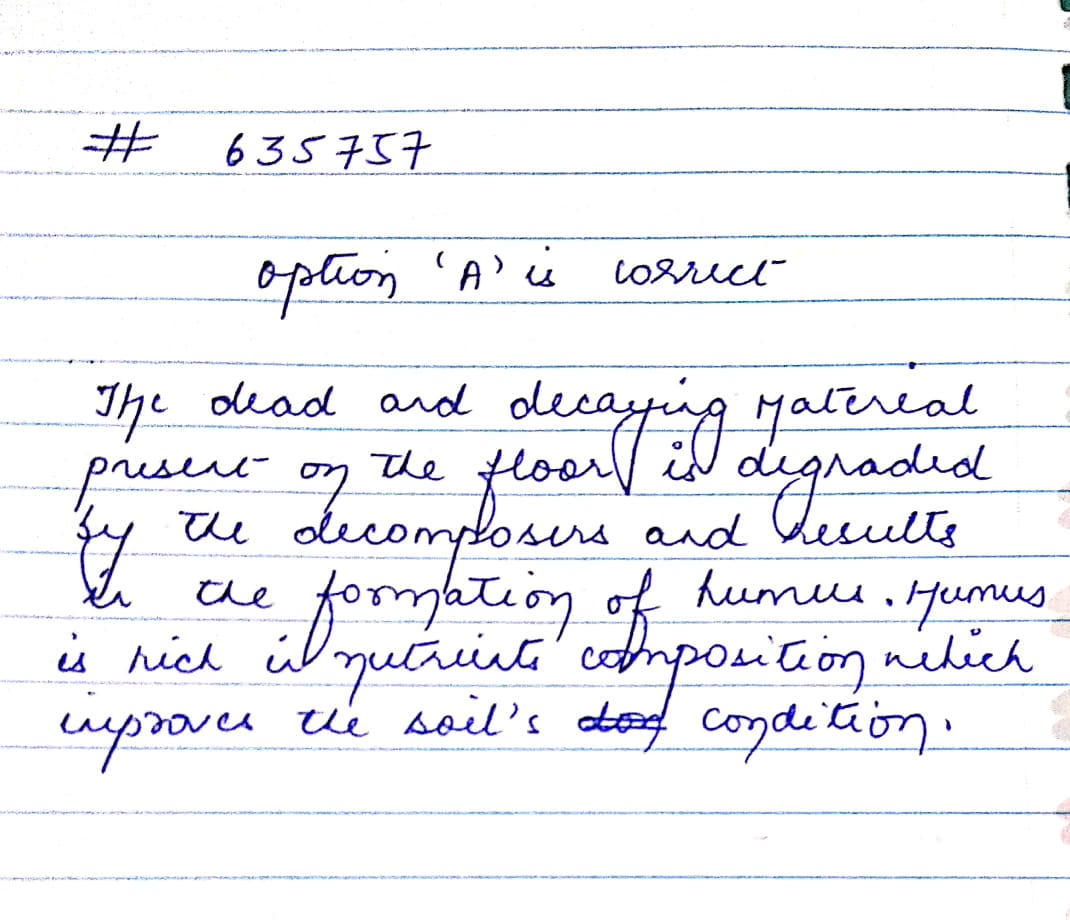 # 635757
option 'A' is correct
The dead and decaying Matereal
present on the floor is degraded
by the decomposers and results
in the formation of humus. Humus
is rich in nutrients composition which
improves the soil's condition.